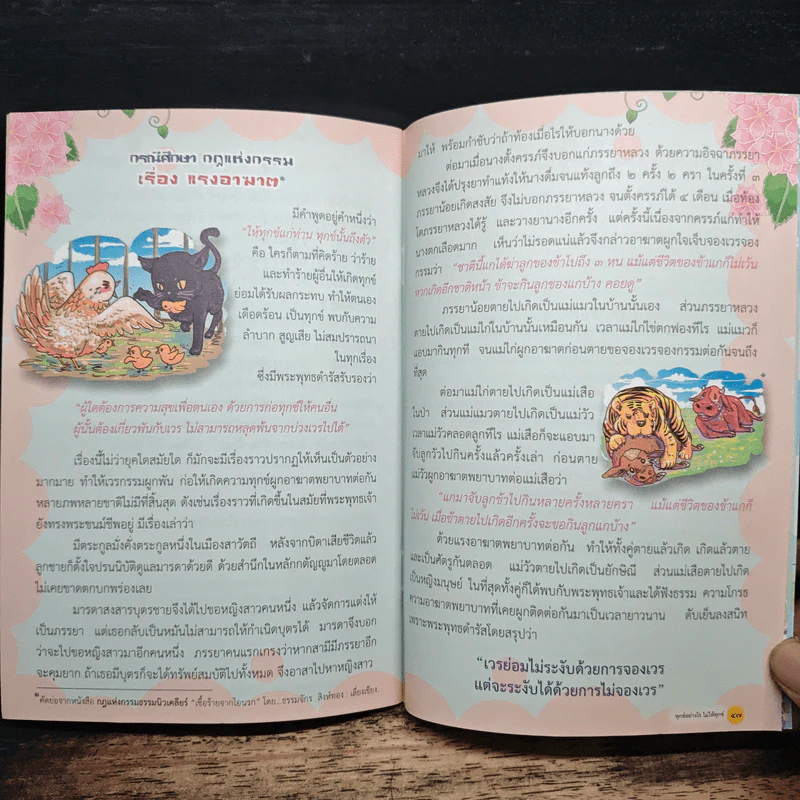 กรณีศึกษา กฎแห่งกรรม
เรื่อง แรงอาฆาต*
มีคำพูดอยู่คำหนึ่งว่า
"ให้ทุกข์แก่ท่าน ทุกข์นั้นถึงตัว"
คือ ใครก็ตามที่คิดร้าย ว่าร้าย
และทำร้ายผู้อื่นให้เกิดทุกข์
ย่อมได้รับผลกระทบ ทำให้ตนเอง
เดือดร้อน เป็นทุกข์ พบกับความ
ลำบาก สูญเสีย ไม่สมปรารถนา
ในทุกเรื่อง
ซึ่งมีพระพุทธดำรัสรับรองว่า
"ผู้ใดต้องการความสุขเพื่อตนเอง ด้วยการก่อทุกข์ให้คนอื่น
ผู้นั้นต้องเกี่ยวพันกับเวร ไม่สามารถหลุดพ้นจากบ่วงเวรไปได้"
เรื่องนี้ไม่ว่ายุคใดสมัยใด ก็มักจะมีเรื่องราวปรากฏให้เห็นเป็นตัวอย่าง
มากมาย ทำให้เวรกรรมผูกพัน ก่อให้เกิดความทุกข์ผูกอาฆาตพยาบาทต่อกัน
หลายภพหลายชาติไม่มีที่สิ้นสุด ดังเช่นเรื่องราวที่เกิดขึ้นในสมัยที่พระพุทธเจ้า
ยังทรงพระชนม์ชีพอยู่ มีเรื่องเล่าว่า
มีตระกูลมั่งคั่งตระกูลหนึ่งในเมืองสาวัตถี หลังจากบิดาเสียชีวิตแล้ว
ลูกชายก็ตั้งใจปรนนิบัติดูแลมารดาด้วยดี ด้วยสำนึกในหลักกตัญญูมาโดยตลอด
ไม่เคยขาดตกบกพร่องเลย
มารดาสงสารบุตรชายจึงได้ไปขอหญิงสาวคนหนึ่ง แล้วจัดการแต่งให้
เป็นภรรยา แต่เธอกลับเป็นหมันไม่สามารถให้กำเนิดบุตรได้ มารดาจึงบอก
ว่าจะไปขอหญิงสาวมาอีกคนหนึ่ง ภรรยาคนแรกเกรงว่าหากสามีมีภรรยาอีก
จะคุมยาก ถ้าเธอมีบุตรก็จะได้ทรัพย์สมบัติไปทั้งหมด จึงอาสาไปหาหญิงสาว
* คัดย่อจากหนังสือ กฎแห่งกรรมธรรมนิวเคลียร์ "เชื้อร้ายจากไอนรก" โดย...ธรรมจักร สิงห์ทอง : เลี่ยงเชียง.
มาให้ พร้อมกำชับว่าถ้าท้องเมื่อไรให้บอกนางด้วย
ต่อมาเมื่อนางตั้งครรภ์จึงบอกแก่ภรรยาหลวง ด้วยความอิจฉาภรรยา
หลวงจึงได้ปรุงยาทำแท้งให้นางดื่มจนแท้งลูกถึง ๒ ครั้ง ๒ ครา ในครั้งที่ ๓
ภรรยาน้อยเกิดสงสัย จึงไม่บอกภรรยาหลวง จนตั้งครรภ์ได้ ๔ เดือน เมื่อท้อง
โตภรรยาหลวงได้รู้ และวางยานางอีกครั้ง แต่ครั้งนี้เนื่องจากครรภ์แก่ทำให้
นางตกเลือดมาก เห็นว่าไม่รอดแน่แล้วจึงกล่าวอาฆาตผูกใจเจ็บจองเวรจอง
กรรมว่า "ชาตินี้แกได้ฆ่าลูกของข้าไปถึง ๓ หน แม้แต่ชีวิตของข้าแกก็ไม่เว้น
หากเกิดอีกชาติหน้า ข้าจะกินลูกของแกบ้าง คอยดู"
ภรรยาน้อยตายไปเกิดเป็นแม่แมวในบ้านนั้นเอง ส่วนภรรยาหลวง
ตายไปเกิดเป็นแม่ไก่ในบ้านนั้นเหมือนกัน เวลาแม่ไก่ไข่ตกฟองทีไร แม่แมวก็
แอบมากินทุกที จนแม่ไก่ผูกอาฆาตก่อนตายขอจองเวรจองกรรมต่อกันจนถึง
ที่สุด
ต่อมาแม่ไก่ตายไปเกิดเป็นแม่เสือ
ในป่า ส่วนแม่แมวตายไปเกิดเป็นแม่วัว
เวลาแม่วัวคลอดลูกทีไร แม่เสือก็จะแอบมา
จับลูกวัวไปกินครั้งแล้วครั้งเล่า ก่อนตาย
แม่วัวผูกอาฆาตพยาบาทต่อแม่เสือว่า
"แกมาจับลูกข้าไปกินหลายครั้งหลายครา แม้แต่ชีวิตของข้าแกก็
ไม่เว้น เมื่อข้าตายไปเกิดอีกครั้งจะขอกินลูกแกบ้าง"
ด้วยแรงอาฆาตพยาบาทต่อกัน ทำให้ทั้งคู่ตายแล้วเกิด เกิดแล้วตาย
และเป็นศัตรูกันตลอด แม่วัวตายไปเกิดเป็นยักษิณี ส่วนแม่เสือตายไปเกิด
เป็นหญิงมนุษย์ ในที่สุดทั้งคู่ก็ได้พบกับพระพุทธเจ้าและได้ฟังธรรม ความโกรธ
ความอาฆาตพยาบาทที่เคยผูกติดต่อกันมาเป็นเวลายาวนาน ดับเย็นลงสนิท
เพราะพระพุทธดำรัสโดยสรุปว่า
"เวรย่อมไม่ระงับด้วยการจองเวร
แต่จะระงับได้ด้วยการไม่จองเวร"
ทุกข์อย่างไร ไม่ให้ทุกข์ ๔๗